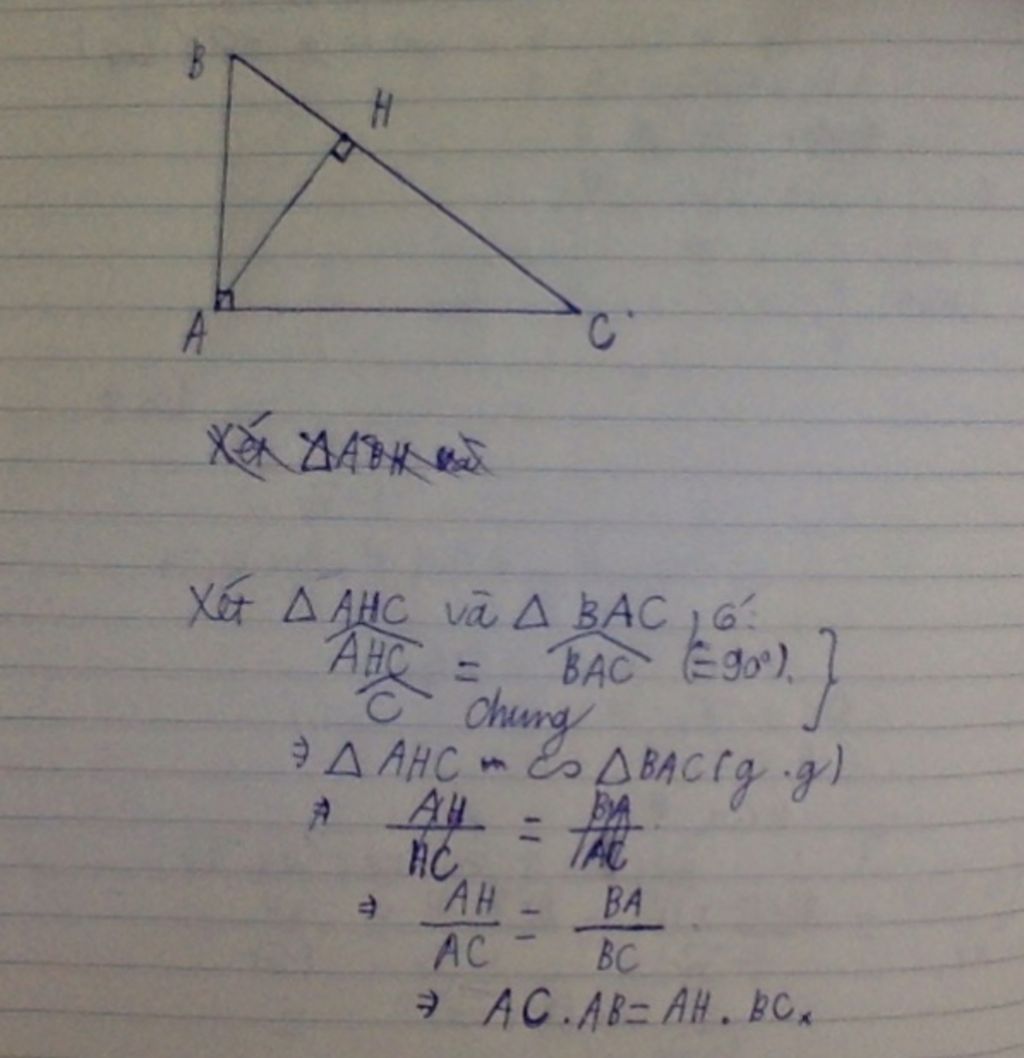 B
H
A
C
Xét ΔABH và
Xét Δ AHC và Δ BAC, có:
AHC = BAC (=90°). }
C chung
⇒ Δ AHC ∽ ΔBAC (g.g)
⇒ AH/HC = BA/AC
⇒ AH/AC = BA/BC
⇒ AC.AB = AH.BC